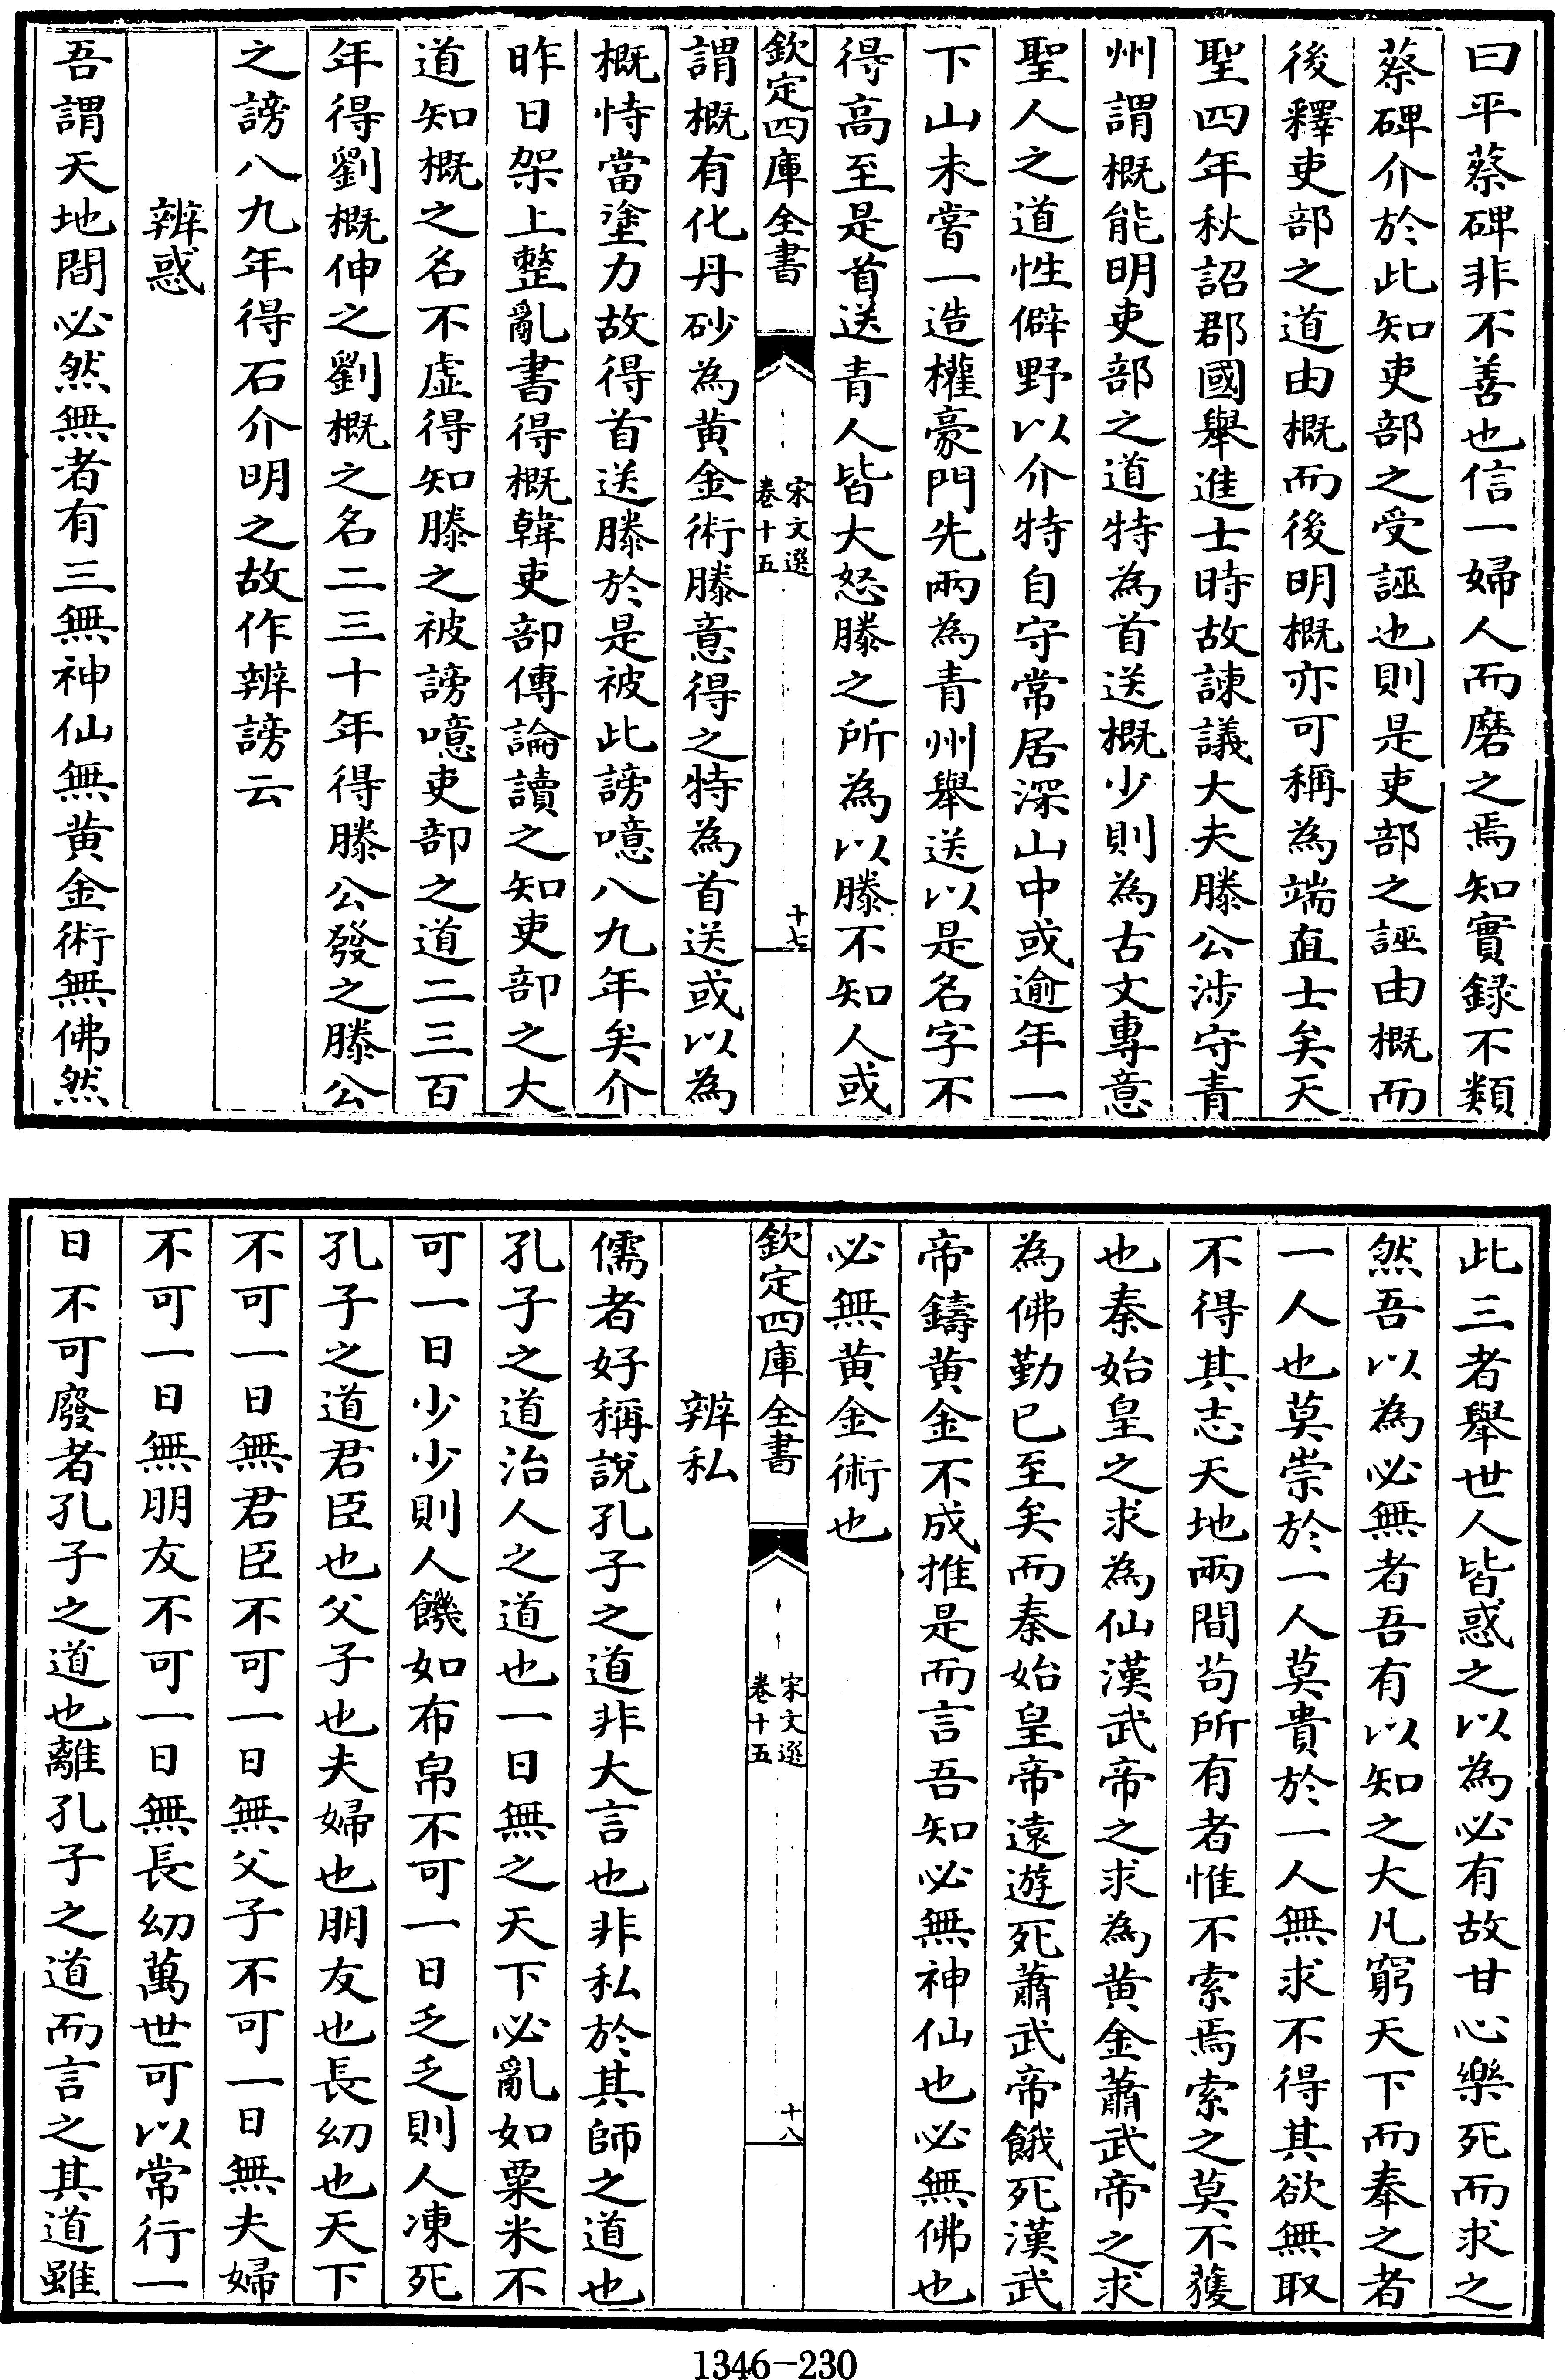 曰平蔡碑非不善也信一婦人而磨之焉知實録不類
蔡碑介於此知吏部之受誣也則是吏部之誣由概而
後釋吏部之道由概而後明概亦可稱為端直士矣天
聖四年秋詔郡國舉進士時故諫議大夫滕公涉守青
州謂概能明吏部之道特為首送概少則為古文專意
聖人之道性僻野以介特自守常居深山中或逾年一
下山未嘗一造權豪門先兩為青州舉送以是名字不
得高至是首送青人皆大怒滕之所為以滕不知人或
欽定四庫全書
宋文選
卷十五
十七
謂概有化丹砂為黄金術滕意得之特為首送或以為
概恃當塗力故得首送滕於是被此謗噫八九年矣介
昨日架上整亂書得概韓吏部傳論讀之知吏部之大
道知概之名不虚得知滕之被謗噫吏部之道二三百
年得劉概伸之劉概之名二三十年得滕公發之滕公
之謗八九年得石介明之故作辨謗云
辨惑
吾謂天地間必然無者有三無神仙無黄金術無佛然
此三者舉世人皆惑之以為必有故甘心樂死而求之
然吾以為必無者吾有以知之大凡窮天下而奉之者
一人也莫崇於一人莫貴於一人無求不得其欲無取
不得其志天地兩間茍所有者惟不索焉索之莫不獲
也秦始皇之求為仙漢武帝之求為黄金蕭武帝之求
為佛勤已至矣而秦始皇帝遠遊死蕭武帝餓死漢武
帝鑄黄金不成推是而言吾知必無神仙也必無佛也
必無黄金術也
欽定四庫全書
宋文選
卷十五
十八
辨私
儒者好稱說孔子之道非大言也非私於其師之道也
孔子之道治人之道也一日無之天下必亂如粟米不
可一日少少則人饑如布帛不可一日乏乏則人凍死
孔子之道君臣也父子也夫婦也朋友也長幼也天下
不可一日無君臣不可一日無父子不可一日無夫婦
不可一日無朋友不可一日無長幼萬世可以常行一
日不可廢者孔子之道也離孔子之道而言之其道雖
1346-230